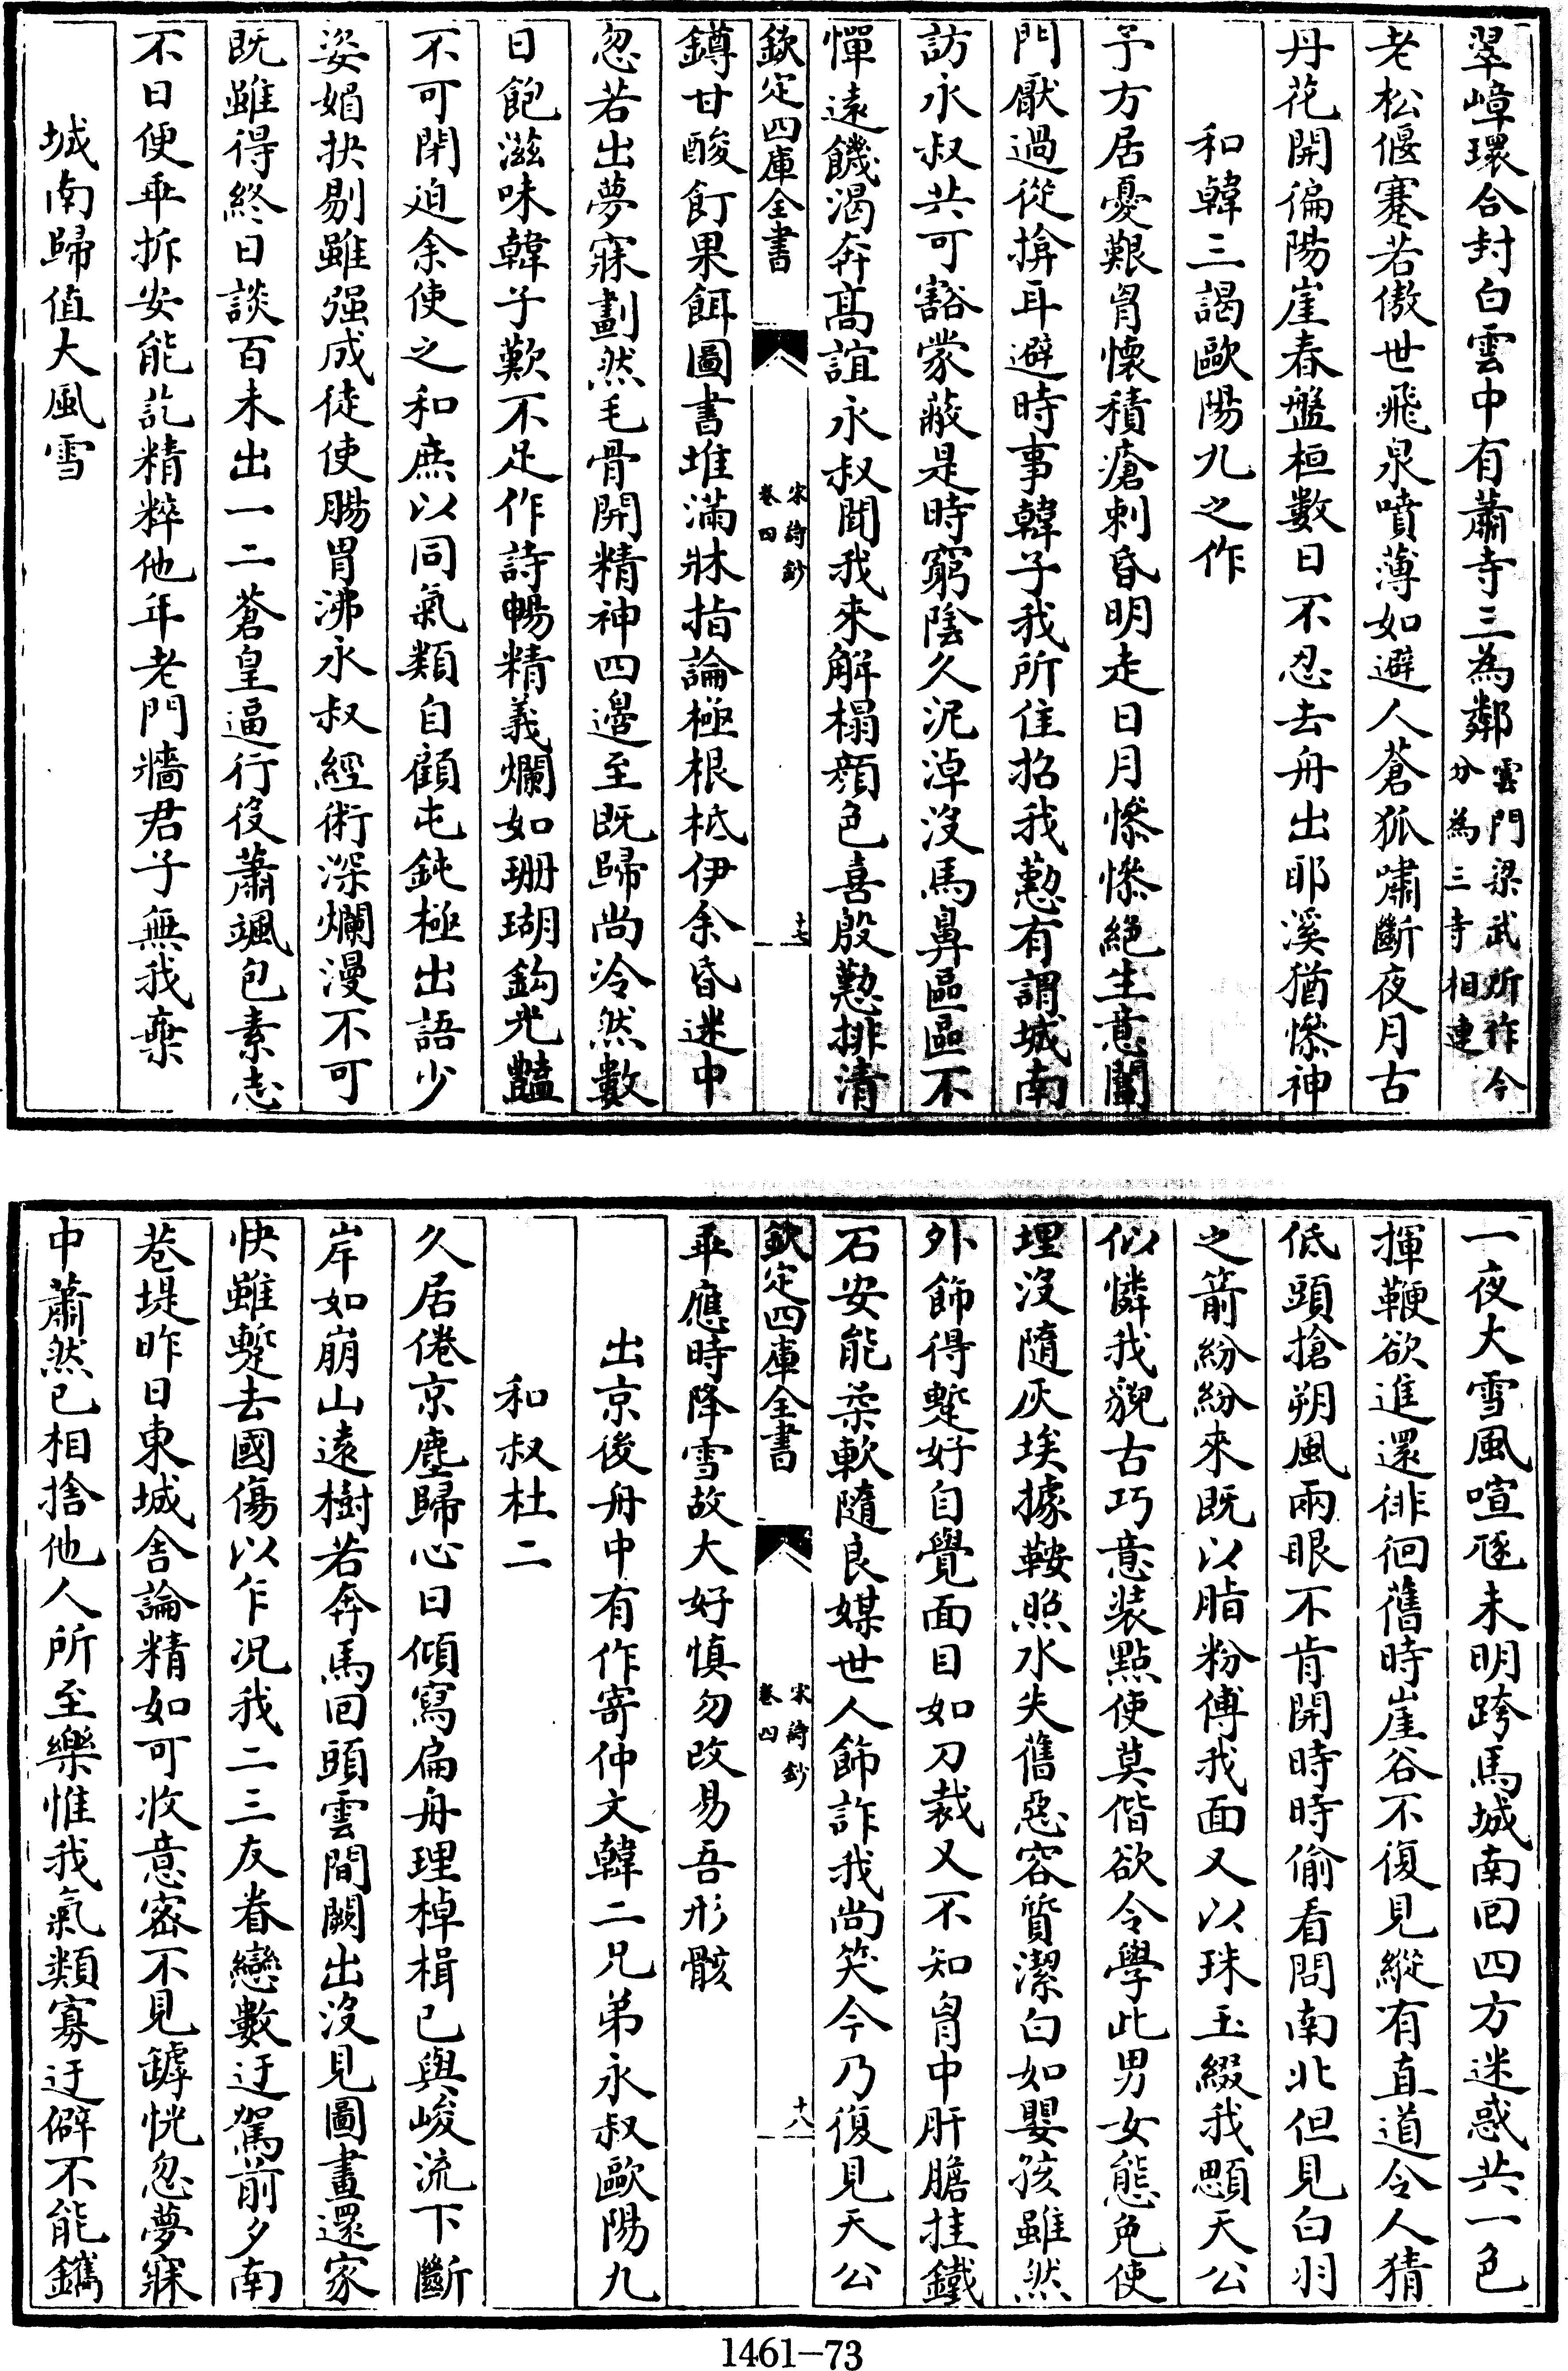 翠嶂環合封白雲中有蕭寺三為鄰雲門梁武所作今分為三寺相連
老松偃蹇若傲世飛泉噴薄如避人蒼狐嘯斷夜月古
丹花開徧陽崖春盤桓數日不忍去舟出耶溪猶慘神
和韓三謁歐陽九之作
予方居憂艱胷懷積瘡刺昏明走日月慘慘絕生意闔
門厭過從揜耳避時事韓子我所住招我懃有謂城南
訪永叔共可豁蒙蔽是時窮陰久泥淖沒馬鼻區區不
憚遠饑渴奔髙誼永叔聞我來解榻顔色喜殷懃排清
欽定四庫全書
宋詩鈔
卷四
十七
罇甘酸飣果餌圖書堆滿牀指論極根柢伊余昏迷中
忽若出夢寐劃然毛骨開精神四邉至既歸尚冷然數
日飽滋味韓子歎不足作詩暢精義爛如珊瑚鈎光豔
不可閉迫余使之和庶以同氣類自顧屯鈍極出語少
姿媚抉剔雖强成徒使腸胃沸永叔經術深爛漫不可
既雖得終日談百未出一二蒼皇逼行役蕭颯包素志
不日便乖拆安能訖精粹他年老門牆君子無我棄
城南歸值大風雪
一夜大雪風喧豗未明跨馬城南回四方迷惑共一色
揮鞭欲進還徘徊舊時崖谷不復見縱有直道令人猜
低頭搶朔風兩眼不肯開時時偷看問南北但見白羽
之箭紛紛來既以脂粉傅我面又以珠玉綴我顋天公
似憐我貌古巧意裝點使莫偕欲令學此男女態免使
埋沒隨灰埃據鞍照水失舊惡容質潔白如嬰孩雖然
外飾得蹔好自覺面目如刀裁又不知胷中肝膽挂鐵
石安能柔軟隨良媒世人飾詐我尚笑今乃復見天公
欽定四庫全書
宋詩鈔
卷四
十八
乖應時降雪故大好慎勿改易吾形骸
出京後舟中有作寄仲文韓二兄弟永叔歐陽九
和叔杜二
久居倦京塵歸心日傾寫扁舟理棹楫已與峻流下斷
岸如崩山遠樹若奔馬回頭雲間闕出沒見圖畫還家
快雖蹔去國傷以乍况我二三友眷戀數迂駕前夕南
巷堤昨日東城舍論精如可收意密不見罅恍忽夢寐
中蕭然已相捨他人所至樂惟我氣類寡迂僻不能鐫
1461-73